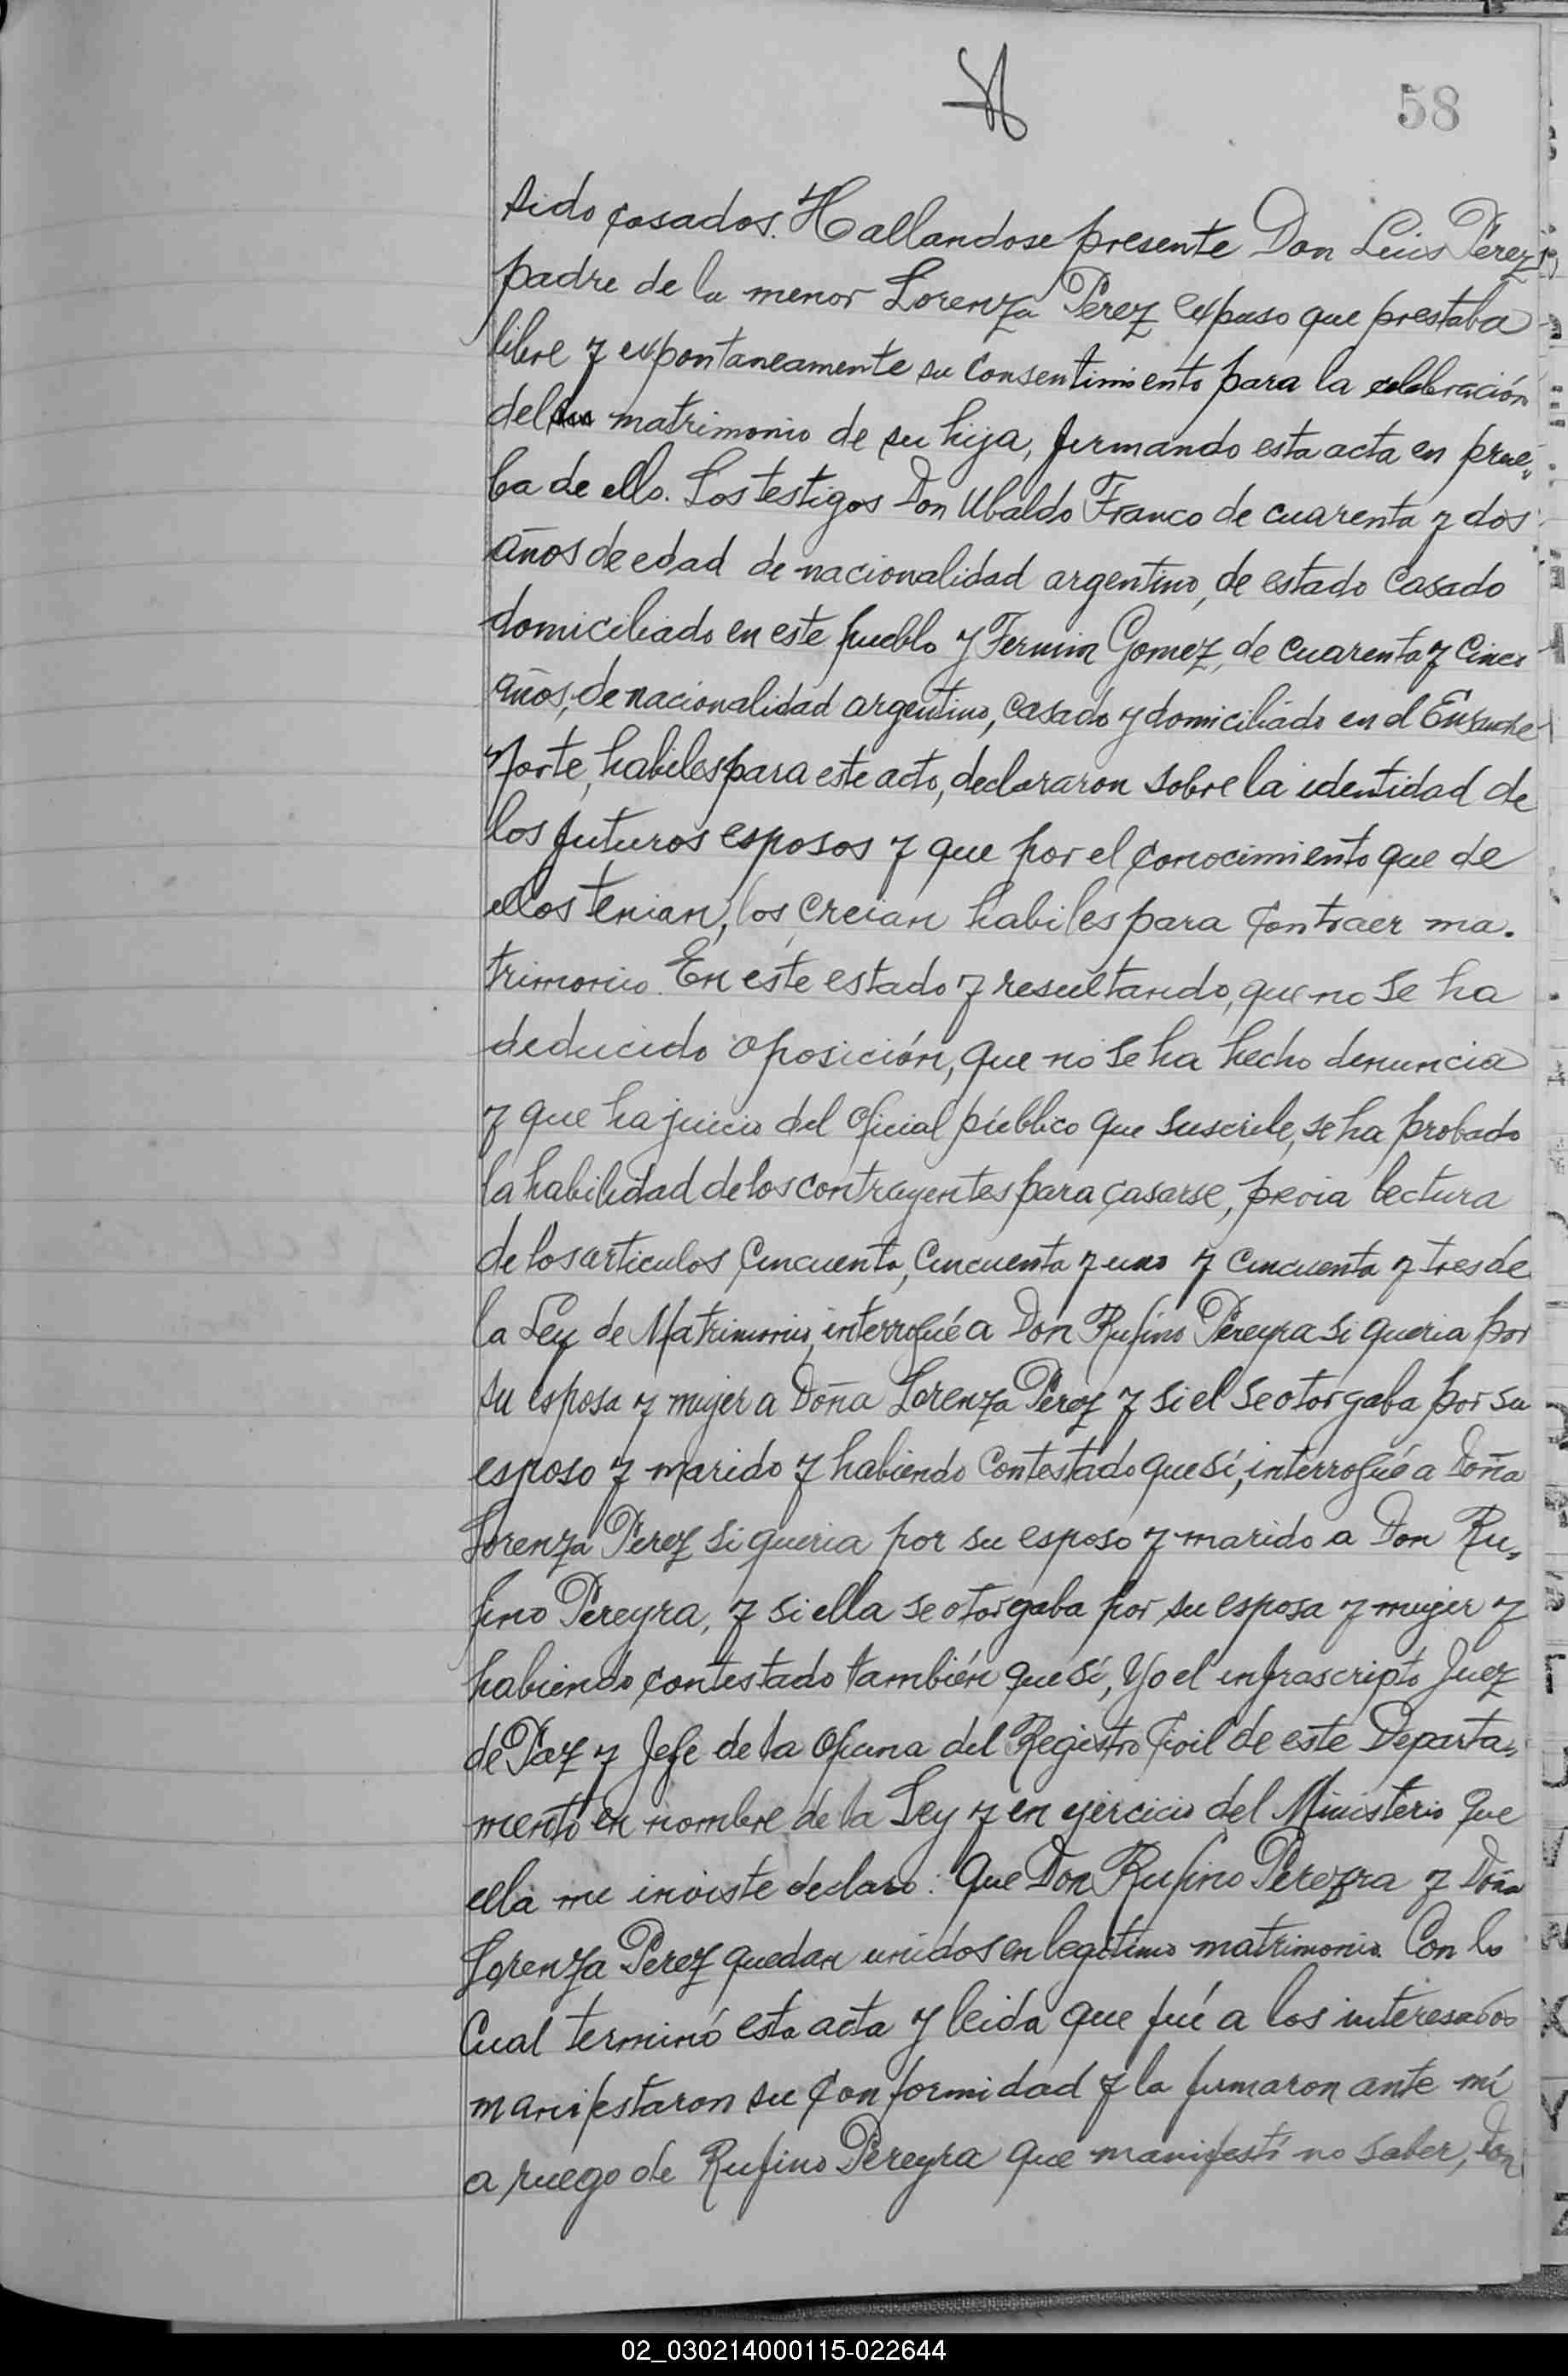 58
sido casados. Hallandose presente Don Luis Pérez,
padre de la menor Lorenza Perez expuso que prestaba
libre y expontaneamente su consentimiento para la celebración
del matrimonio de su hija, firmando esta acta en prue„
ba de ello. Los testigos Don Ubaldo Franco de cuarenta y dos
años de edad de nacionalidad argentino, de estado casado
domiciliado en este pueblo y Fermin Gomez, de cuarenta y cinco
años, de nacionalidad argentino, casado y domiciliado en el Ensanche
Norte, habiles para este acto, declararon sobre la identidad de
los futuros esposos y que por el conocimiento que de
ellos tenian, los creian habiles para contraer ma.
trimonio. En este estado y resultando, que no se ha
deducido oposición, que no se ha hecho denuncia
y que ha juicio del oficial público que suscribe, se ha probado
la habilidad de los contrayentes para casarse, previa lectura
de los articulos cincuenta, cincuenta y uno y cincuenta y tres de
la Ley de Matrimonio, interrogué a Don Rufino Pereyra si queria por
su esposa y mujer a Doña Lorenza Perez y si el se otorgaba por su
esposo y marido y habiendo contestado que sí, interrogué a Doña
Lorenza Perez si queria por su esposo y marido a Don Ru„
fino Pereyra, y si ella se otorgaba por su esposa y mujer y
habiendo contestado también que sí, Yo el infrascripto Juez
de Paz y Jefe de la Oficina del Registro Civil de este Departa„
mento en nombre de la Ley y en ejercicio del Ministerio que
ella me inviste declaro: que Don Rufino Pereyra y Doña
Lorenza Perez quedan unidos en legitimo matrimonio. Con lo
cual terminó esta acta y leida que fué a los interesados
manifestaron su conformidad y la firmaron ante mí
a ruego de Rufino Pereyra que manifestó no saber, Don
02_030214000115-022644